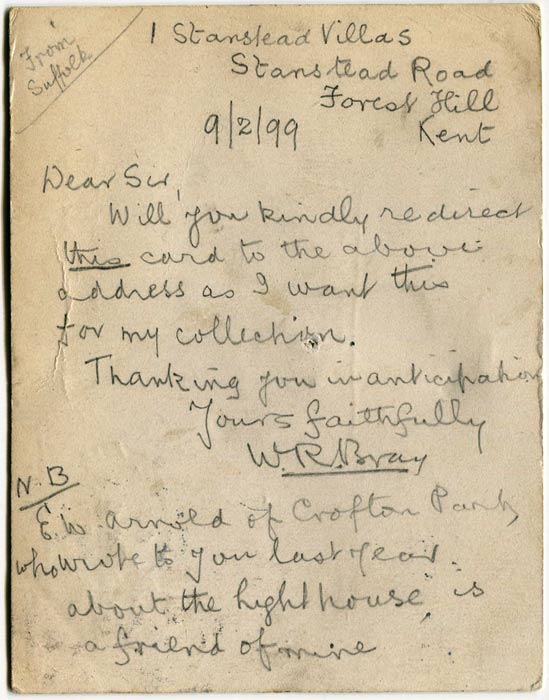 From
Suffolk
1 Stanstead Villas
Stanstead Road
Forest Hill
Kent
9/2/99
Dear Sir,
Will you kindly redirect
this card to the above
address as I want this
for my collection.
Thanking you in anticipation
Yours faithfully
W.R.Bray
N.B
E.W arnold of Crofton Park,
who wrote to you last year
about the lighthouse, is
a friend of mine